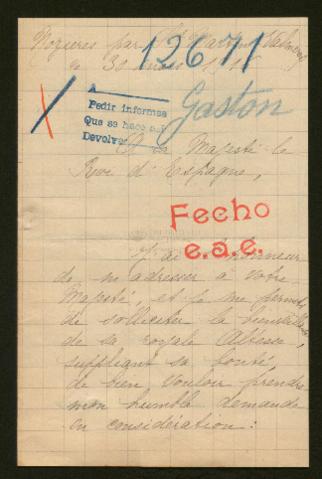 Nozières par St
12671
le 30
Gaston
Pedir informes
Que se hace así
Devolver
A sa Majesté le
Roi d'Espagne,
Fecho
e.a.e.
J'ai l'honneur
de m'adresser à votre
Majesté, et je me permets
de solliciter la bienveillance
de sa royale Altesse,
suppliant sa bonté,
de bien vouloir prendre
mon humble demande
en considération: